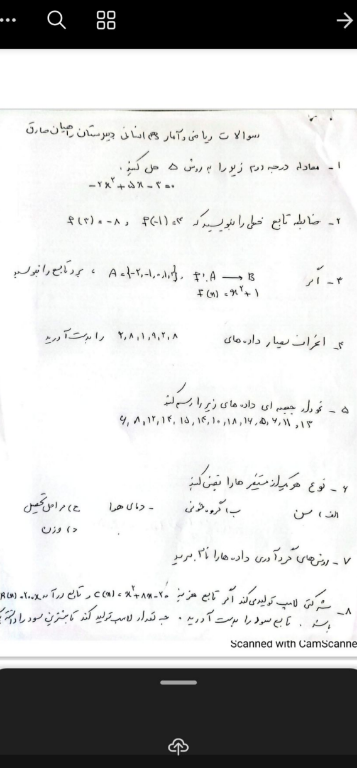 سوالات ریاضی و آمار دهم انسانی دبیرستان راهیان صادق
۱- معادله درجه دوم زیر را به روش Δ حل کنید.
-۲x²+۵x-۳=۰
۲- ضابطه تابع خطی را بنویسید که f(-1)=۴ , f(۲)=-۸
۳- اگر f:A → B , A={-۲,-۱,۰,۱,۲} ، برد تابع را بنویسید
f(x)=x²+1
۴- انحراف معیار داده های ۲,۸,۱,۹,۲,۸ را بدست آورید
۵- نمودار جعبه ای داده های زیر را رسم کنید
۶,۸,۱۲,۱۴,۱۵,۱۴,۱۰,۱۸,۱۷,۵,۷,۱۱,۱۳
۶- نوع هر یک از متغیر ها را تعیین کنید
الف) سن ب) گروه خونی - دمای هوا ج) مراحل تحصیل
د) وزن
۷- روش های گردآوری داده ها را نام ببرید
۸- شرکتی لامپ تولید می کند اگر تابع هزینه C(x)=x²+۸x-۲۰ و تابع درآمد
باشد. تابع سود را بدست آورید. چه تعداد لامپ تولید کند تا بیشترین سود را داشته
Scanned with CamScanne